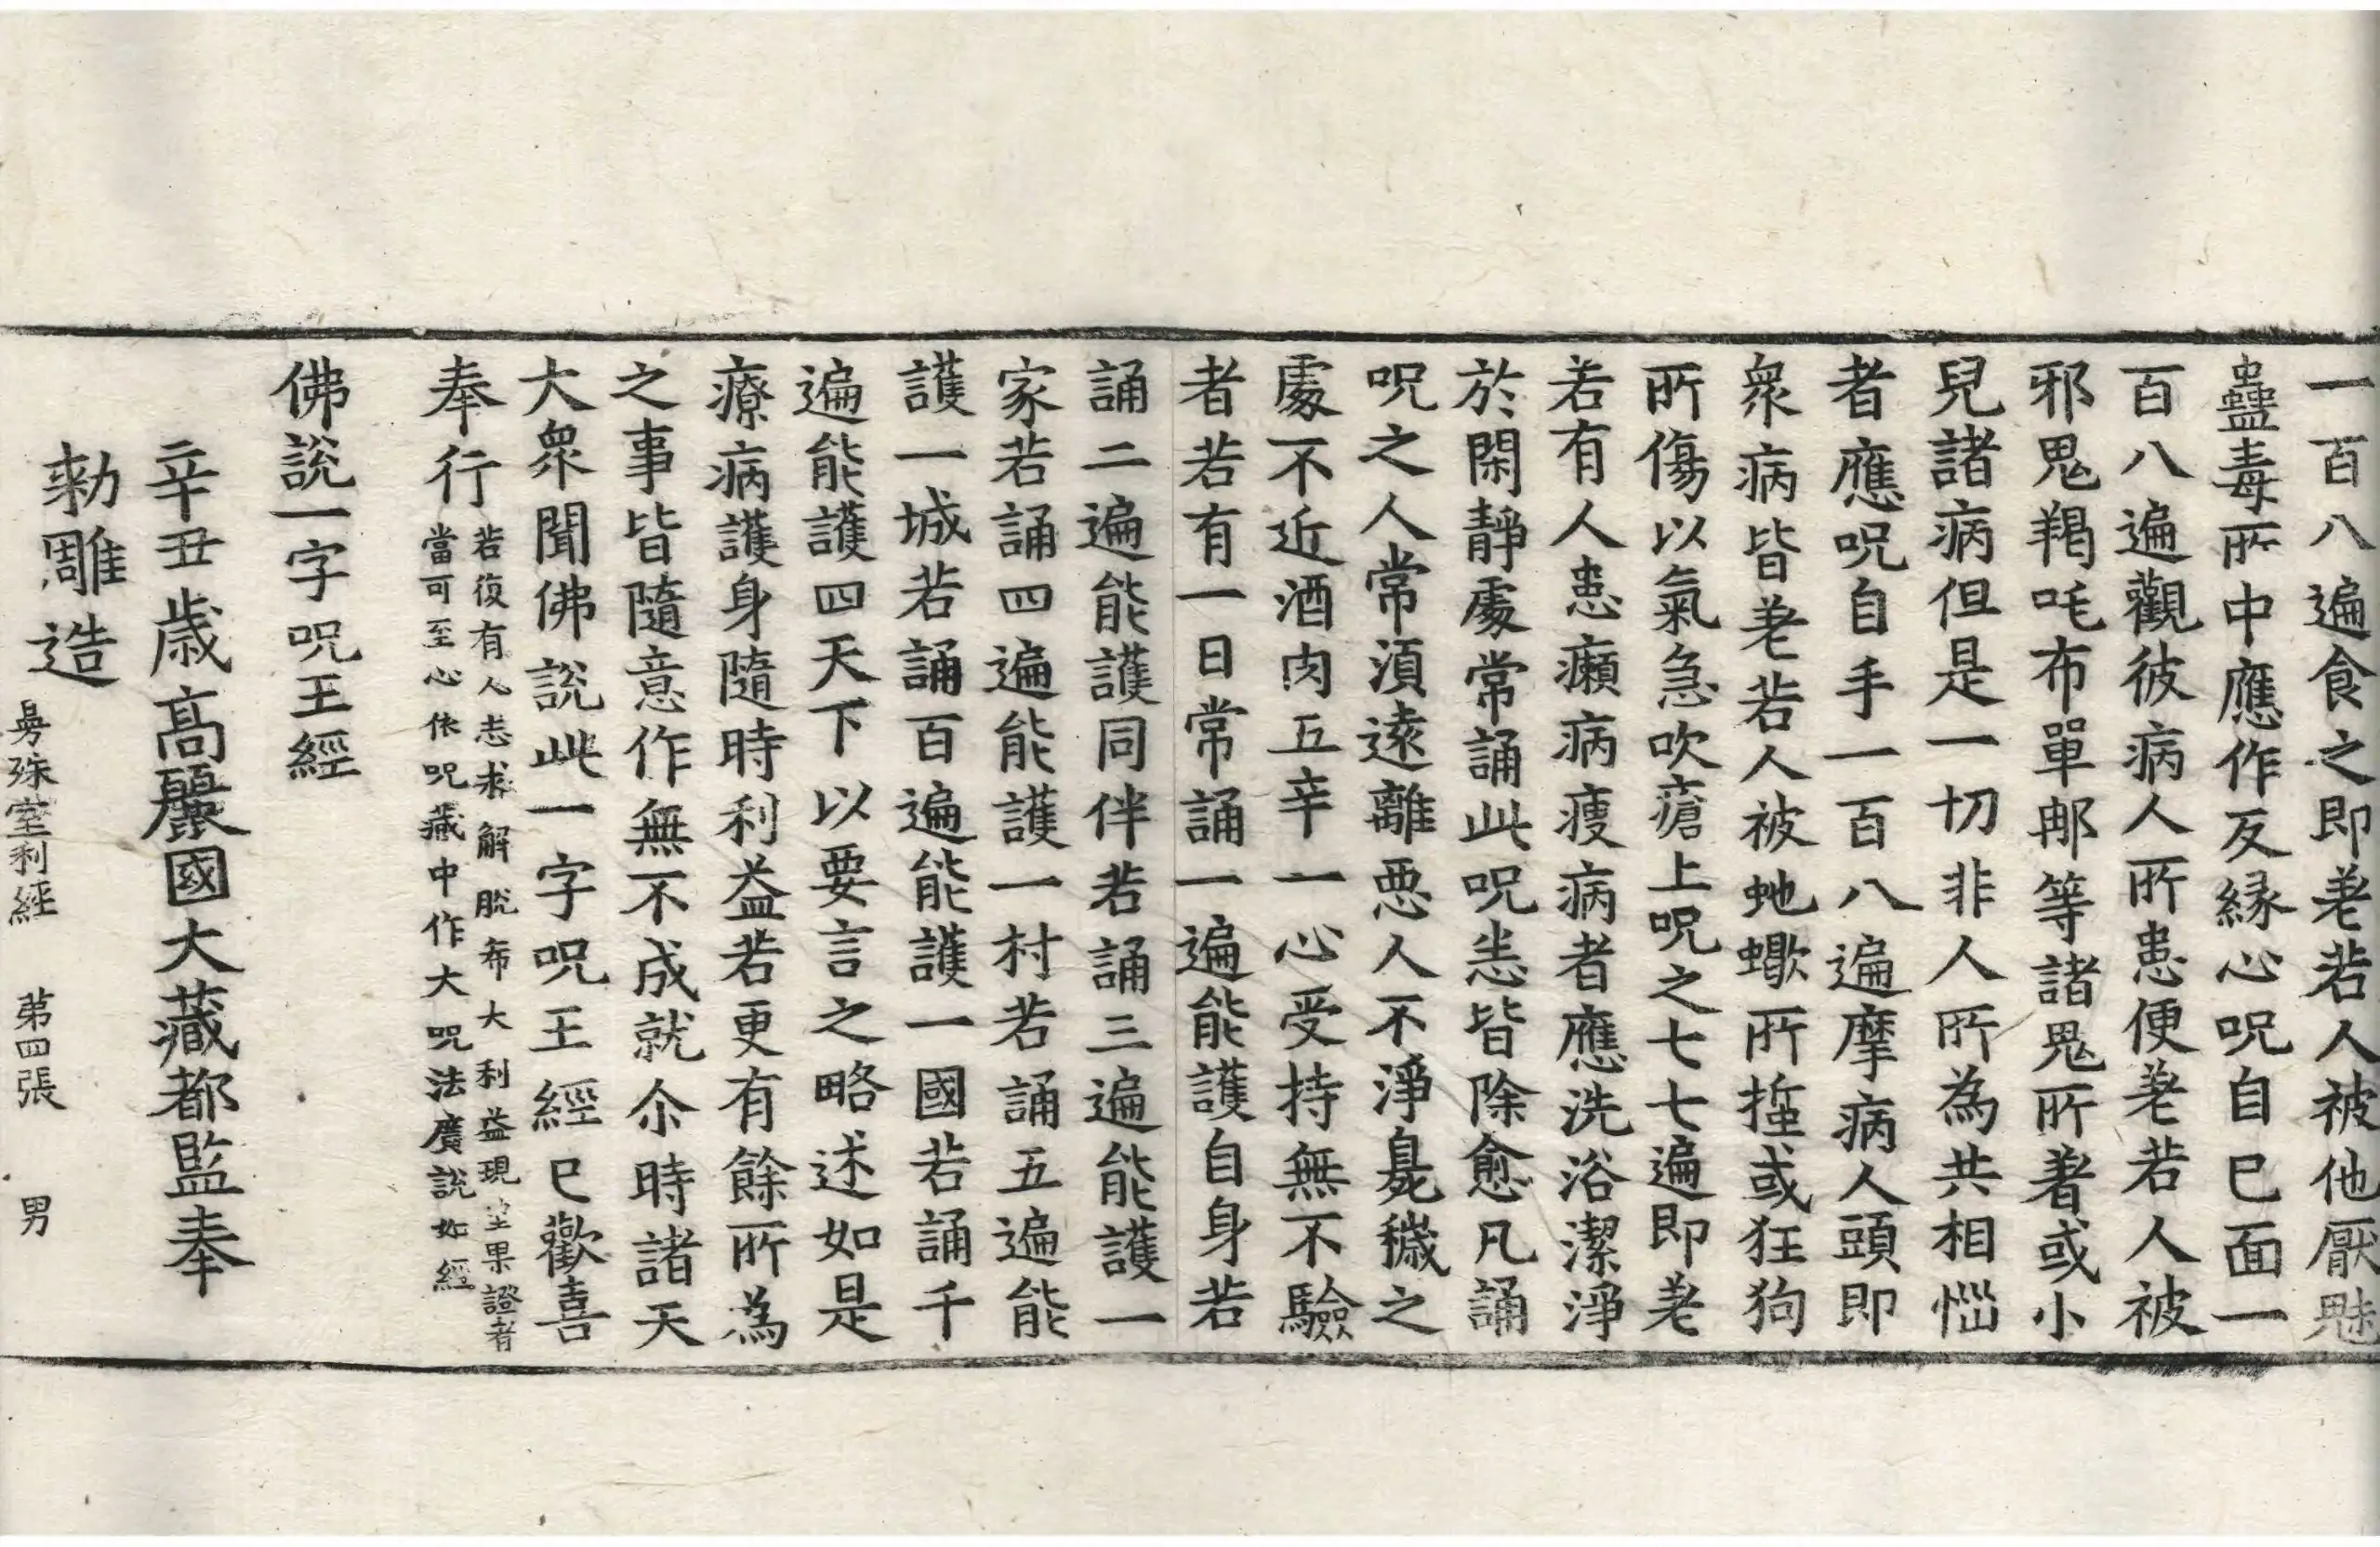 一百八遍食之即差若人被他厭魅
蠱毒所中應作反緣心呪自己面一
百八遍觀彼病人所患便差若人被
邪鬼羯吒布單那等諸鬼所著或小
兒諸病但是一切非人所為共相惱
者應呪自手一百八遍摩病人頭即
衆病皆差若人被虵蠍所螫或狂狗
所傷以氣急吹瘡上呪之七七遍即差
若有人患癩病瘦病者應洗浴潔淨
於閑靜處常誦此呪恙皆除愈凡誦
呪之人常湏遠離惡人不淨臭穢之
處不近酒肉五辛一心受持無不驗
者若有一日常誦一遍能護自身若
誦二遍能護同伴若誦三遍能護一
家若誦四遍能護一村若誦五遍能
護一城若誦百遍能護一國若誦千
遍能護四天下以要言之略述如是
療病護身隨時利益若更有餘所為
之事皆隨意作無不成就尒時諸天
大衆聞佛說此一字呪王經已歡喜
奉行 若復有人志求解脫布大利益現望果證者
當可至心依呪藏中作大呪法廣說如經
佛說一字呪王經
辛丑歲高麗國大藏都監奉
勅雕造
曼殊室利經 第四張 男